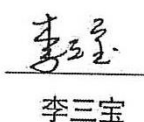 李三宝
李三宝